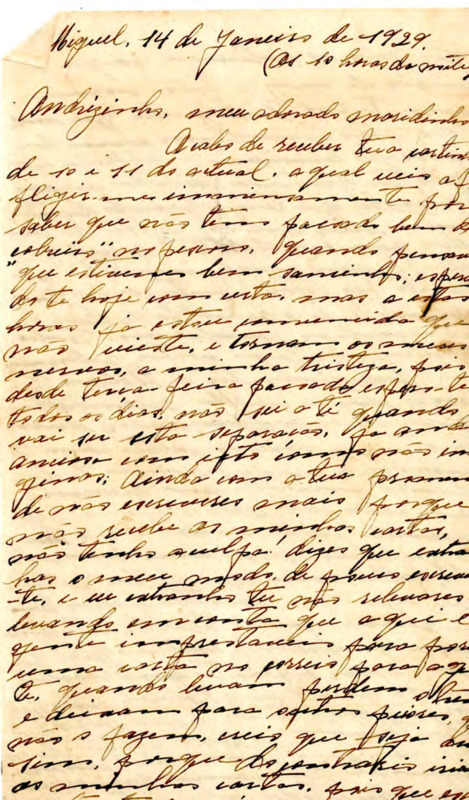 Miguel, 14 de Janeiro de 1929.
(As 10 horas da noite
Andrezinho, meu adorado maridinho
Acabo de receber tua cartin
de 10 e 11 do actual, a qual veis af
fligir-me immensamente por
saber que não tens passado bem do
"cobreiro" no pescoço, quando pensav
que estivesses bem sãosinho; espera
do te hoje com certa, mas a estas
horas já estou convencida que
não vieste, e tornam os meus
nervos, a minha tristeza, pois
desde terça feira passada espero-te
todos os dias, não sei até quando
vai ser esta separação, já ando
anciosa com isto como não im
ginas; Ainda com a tua
de não escreveres mais porque
não recebe as minhas cartas,
não tenho a culpa! dizes que extra
has o meu modo, de pouco escrever
-te, e eu extranho tu não relevares
levando em conta que aqui é
gente imprestavel para por
uma carta no correio para a g
te, quando levam perdem
e deixam para outros
não o fazem, creio que seja
sim, porque do contrario iria
as minhas cartas, pois que es